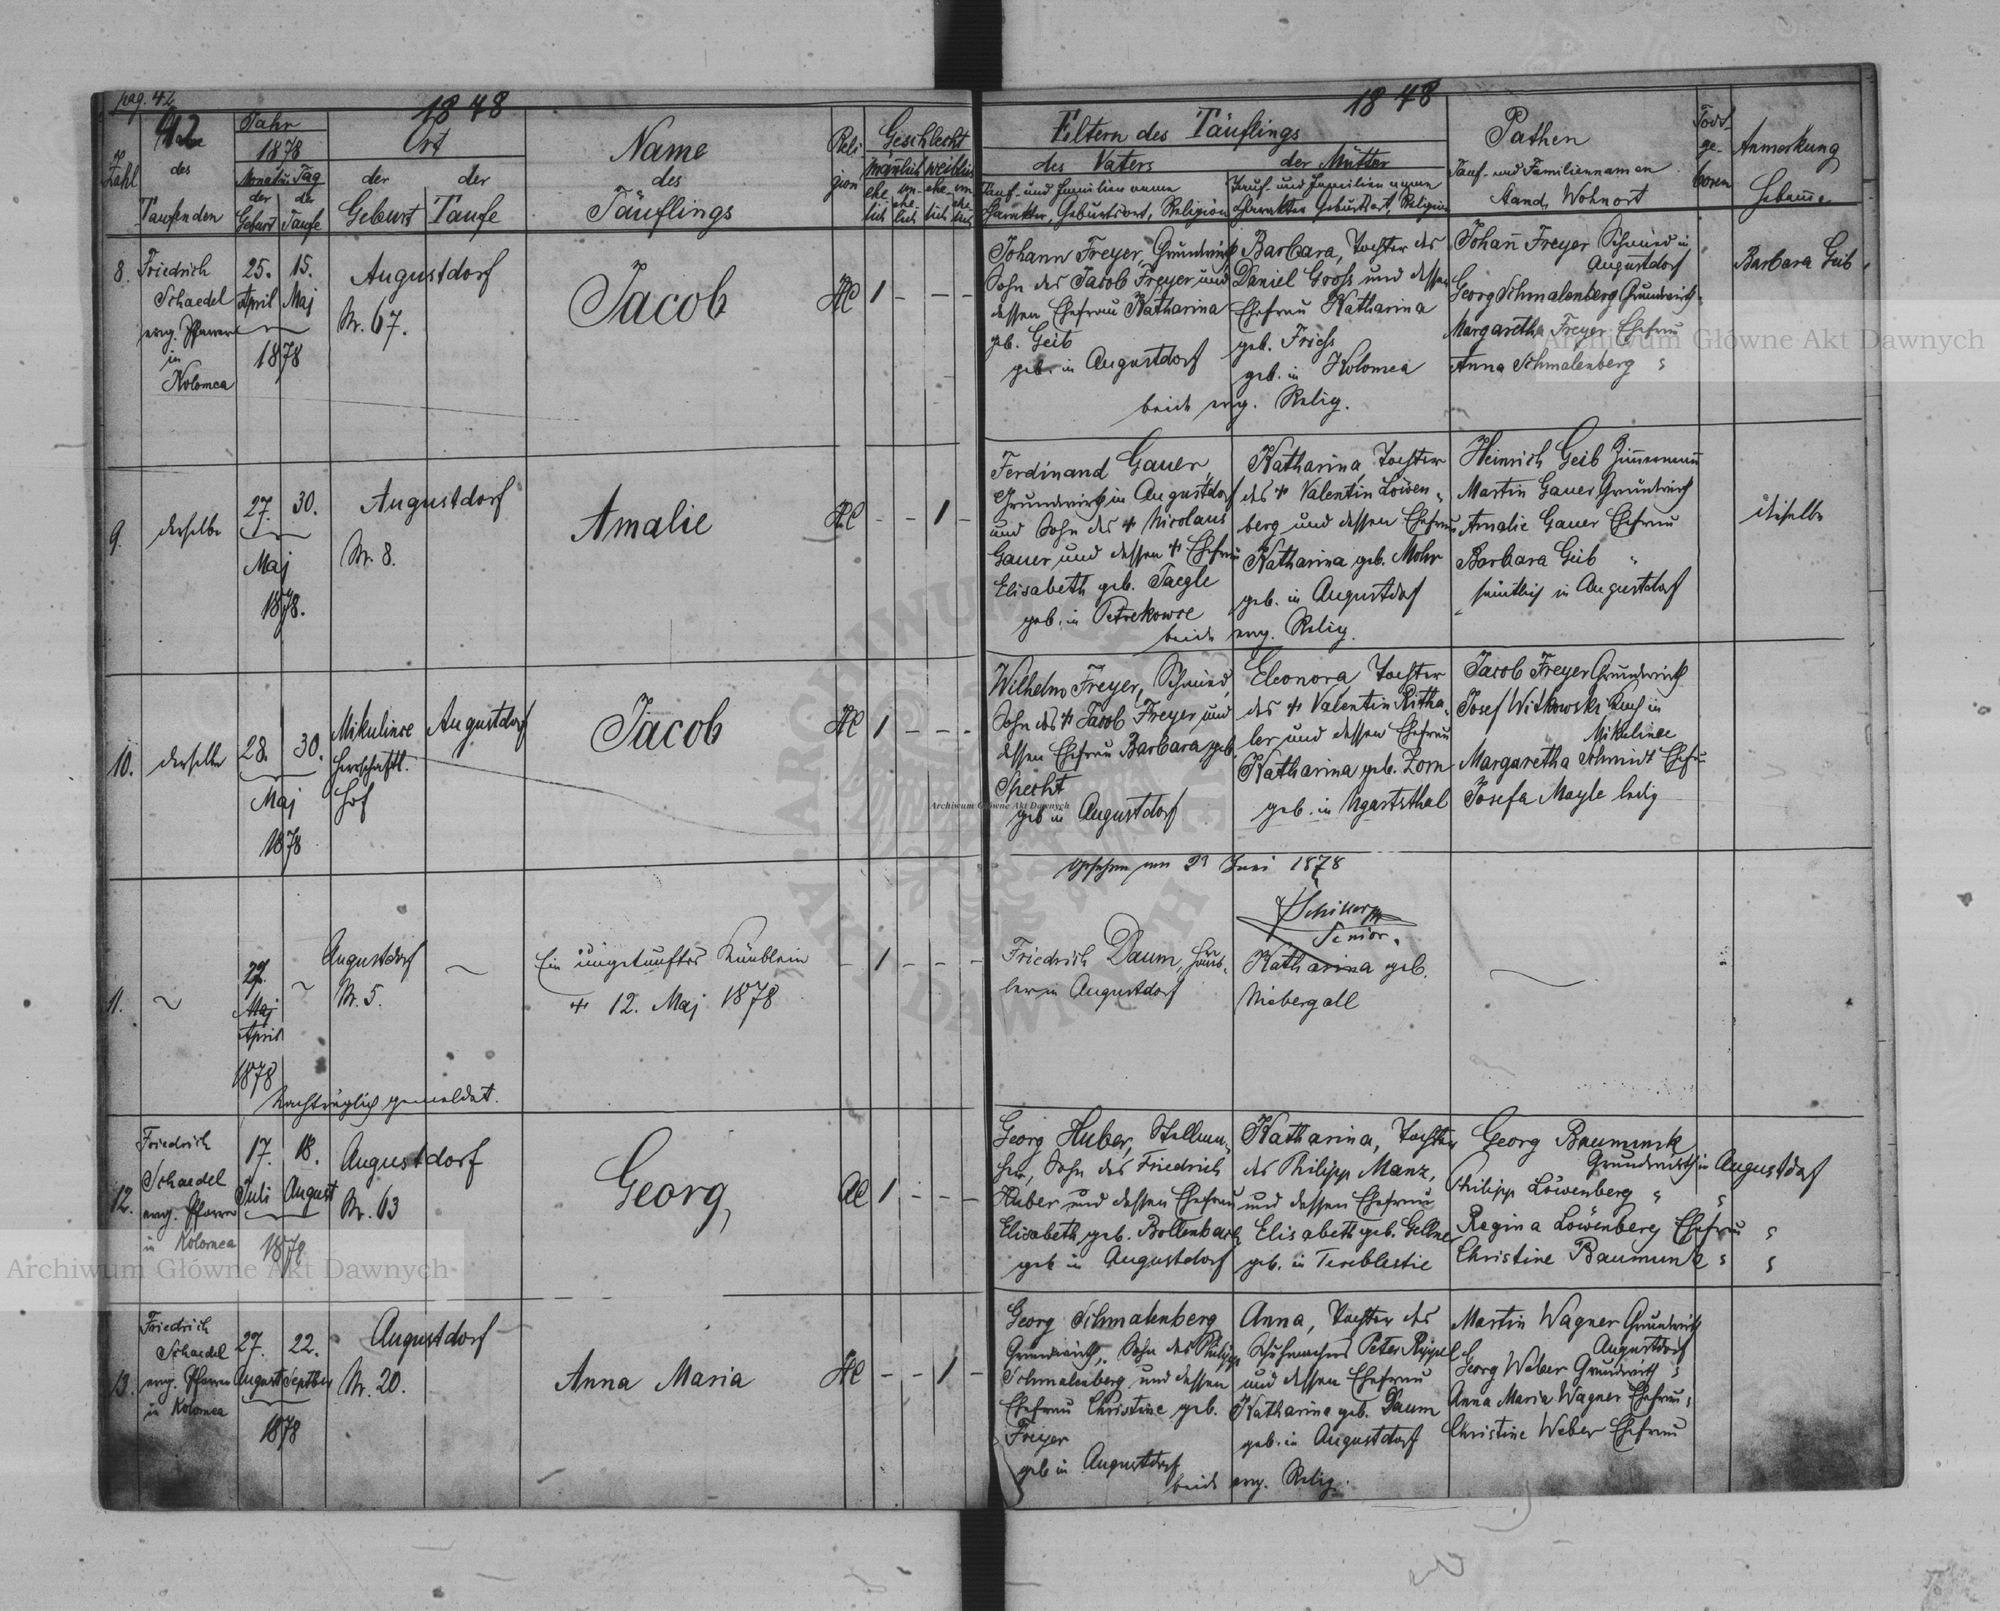 pag. 42
1878
42
Zahl
Name
des
Taufenden
Jahr
1878
Monat u. Tag
der
Geburt
der
Taufe
Ort
der
Geburt
der
Taufe
Name
des
Täuflings
Reli
gion
Geschlecht
männlich
weiblich
ehe
lich
un-
ehe-
lich
ehe-
lich
un
ehe-
lich
8.
Friedrich
Schaedel
evng. Pfarrer
in
Kolomea
25.
April
15.
Maj
1878
Augustdorf
Nr. 67.
Jacob
AC
1 - - -
9.
derselbe
27. 30.
Maj
1878.
Augustdorf
Nr. 8.
Amalie
AC
- - 1 -
10.
derselbe
28. 30.
Maj
1878
Mikulince
herrschaftl.
Hof
Augustdorf
Jacob
AC
1 - - -
11.
27.
Maj
April
1878
Nachträglich gemeldet.
Augustdorf
Nr. 5.
Ein ungetauftes Knäblein
+ 12. Maj 1878
- 1 - - -
12.
Friedrich
Schaedel
evng. Pfarrer
in Kolomea
17.
Juli
18.
August
1878
Augustdorf
Nr. 63
Georg
AC
1 - - -
13.
Friedrich
Schaedel
evng. Pfarrer
in Kolomea
27.
August
22.
Septber
1878
Augustdorf
Nr. 20.
Anna Maria
AC
- - 1 -
1878
Eltern des Täuflings
des Vaters
Tauf- und Familienname
Charakter, Geburtsort, Religion
der Mutter
Tauf- und Familienname
Charakter Geburtsort, Religion
Pathen
Tauf- und Familiennamen
Stand, Wohnort
Todt-
ge-
boren
Anmerkung
Hebamme
Johann Freyer, Grundwirth
Sohn des Jacob Freyer und
dessen Ehefrau Katharina
geb. Geib
geb. in Augustdorf
Barbara, Tochter des
Daniel Gross und dessen
Ehefrau Katharina
geb. Friess
geb. in Kolomea
beide evng. Relig.
Johann Freyer Schmied in
Augustdorf
Georg Schmalenberg Grundwirth
Margaretha Freyer Ehefrau
Anna Schmalenberg "
Barbara Geib
Ferdinand Gauer
Grundwirth in Augustdorf
und Sohn des + Nicolaus
Gauer und dessen + Ehefrau
Elisabeth geb. Jaegle
geb. in Petrekowce
Katharina, Tochter
des + Valentin Löwen-
berg und dessen Ehefrau
Katharina geb. Mohr
geb. in Augustdorf
beide evng. Relig.
Heinrich Geib Zimmermann
Martin Gauer Grundwirth
Amalie Gauer Ehefrau
Barbara Geib "
sämtlich in Augustdorf
dieselbe
Wilhelm Freyer, Schmied,
Sohn des + Jacob Freyer und
dessen Ehefrau Barbara geb.
Specht
geb in Augustdorf
Eleonora Tochter
des + Valentin Ritha-
ler und dessen Ehefrau
Katharina geb. Zorn
geb. in Ugartsthal
Jacob Freyer Grundwirth
Josef Witkowski in
Mikulince
Margaretha Schmidt Ehefr.
Josefa Mayle ledig
Gesehen am 23 Juni 1878
Senior.
Friedrich Daum, Häus-
ler in Augustdorf
Katharina geb.
Niebergall
Georg Huber, Stellma-
her, Sohn des Friedrich
Huber und dessen Ehefrau
Elisabeth geb. Bollenbach
geb in Augustdorf
Katharina, Tochter
des Philipp Manz,
und dessen Ehefrau
Elisabeth geb. Gellner
geb. in Tereblestie
Georg Baumunk
Grundwirth in Augustdorf
Philipp Löwenberg " "
Regina Löwenberg Ehefrau "
Christine Baumunk " "
Georg Schmalenberg
Grundwirth, Sohn des Philipp
Schmalenberg und dessen
Ehefrau Christine geb.
Freyer
geb in Augustdorf
Anna, Tochter des
Schuhmachers Peter Rippel
und dessen Ehefrau
Katharina geb. Daum
geb. in Augustdorf
beide evng. Relig.
Martin Wagner Grundwirth
Augustdorf
Georg Weber Grundwirth "
Anna Maria Wagner Ehefrau "
Christine Weber Ehefrau
Archiwum Główne Akt Dawnych
Archiwum Główne Akt Dawnych
Archiwum Główne Akt Dawnych